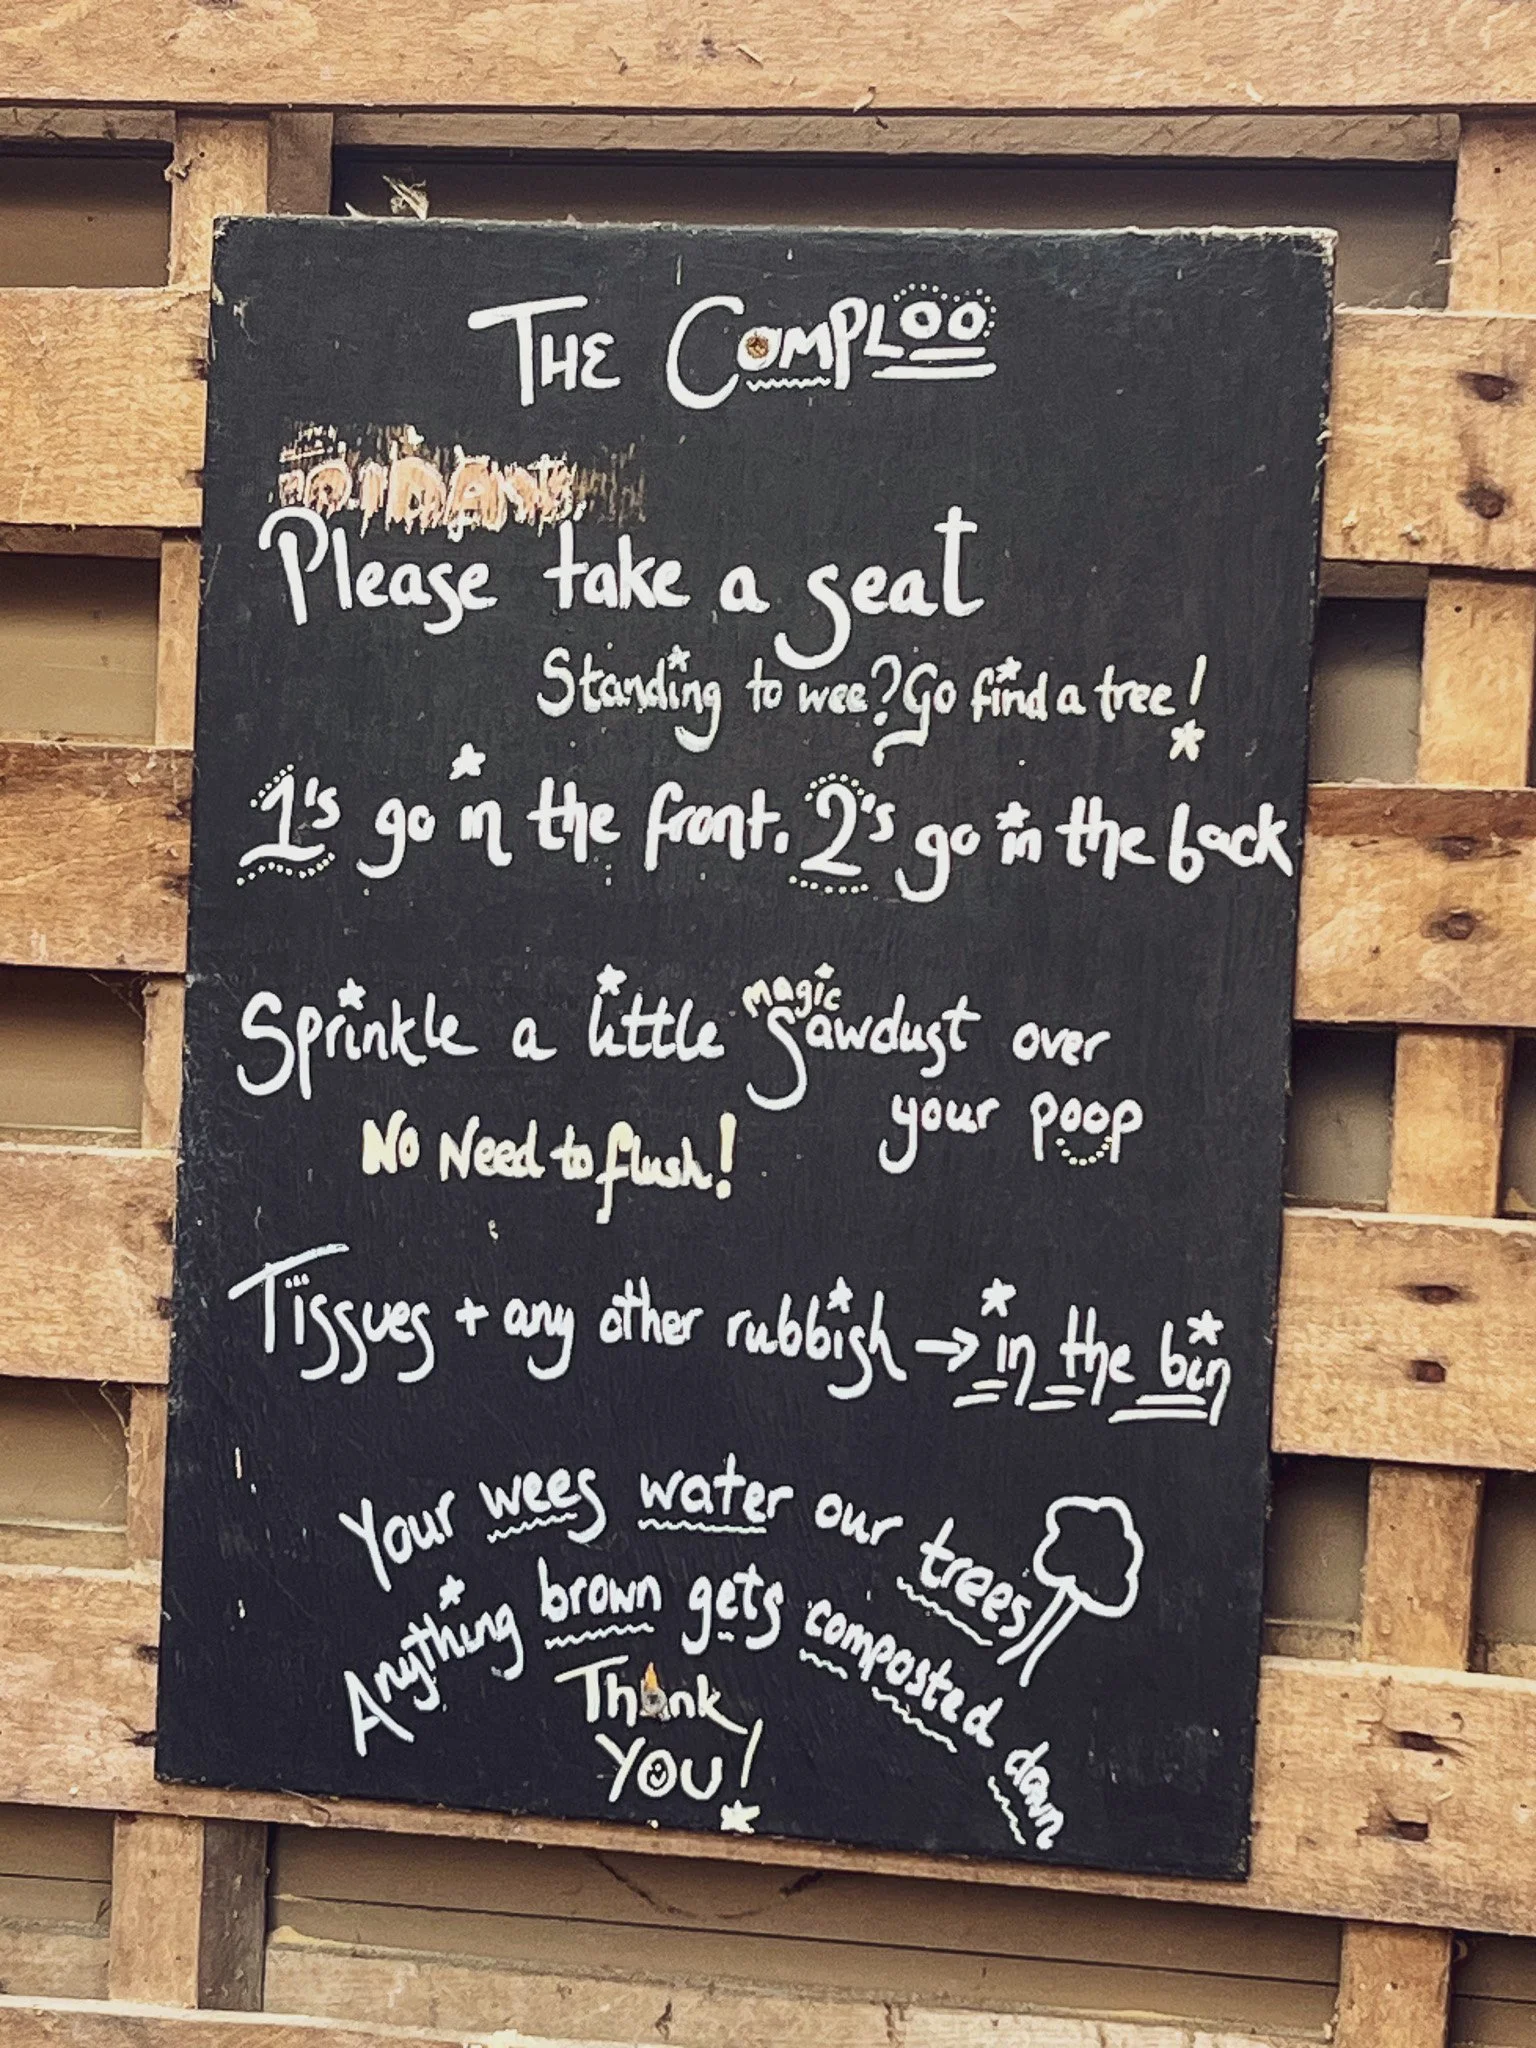 THE COMPLOO
Please take a seat
Standing to wee? Go find a tree!
1's go in the front. 2's go in the back
Sprinkle a little magic sawdust over
your poop
No Need to flush!
Tissues + any other rubbish → in the bin
Your wees water our trees
Anything brown gets composted down
Thank
YOU!